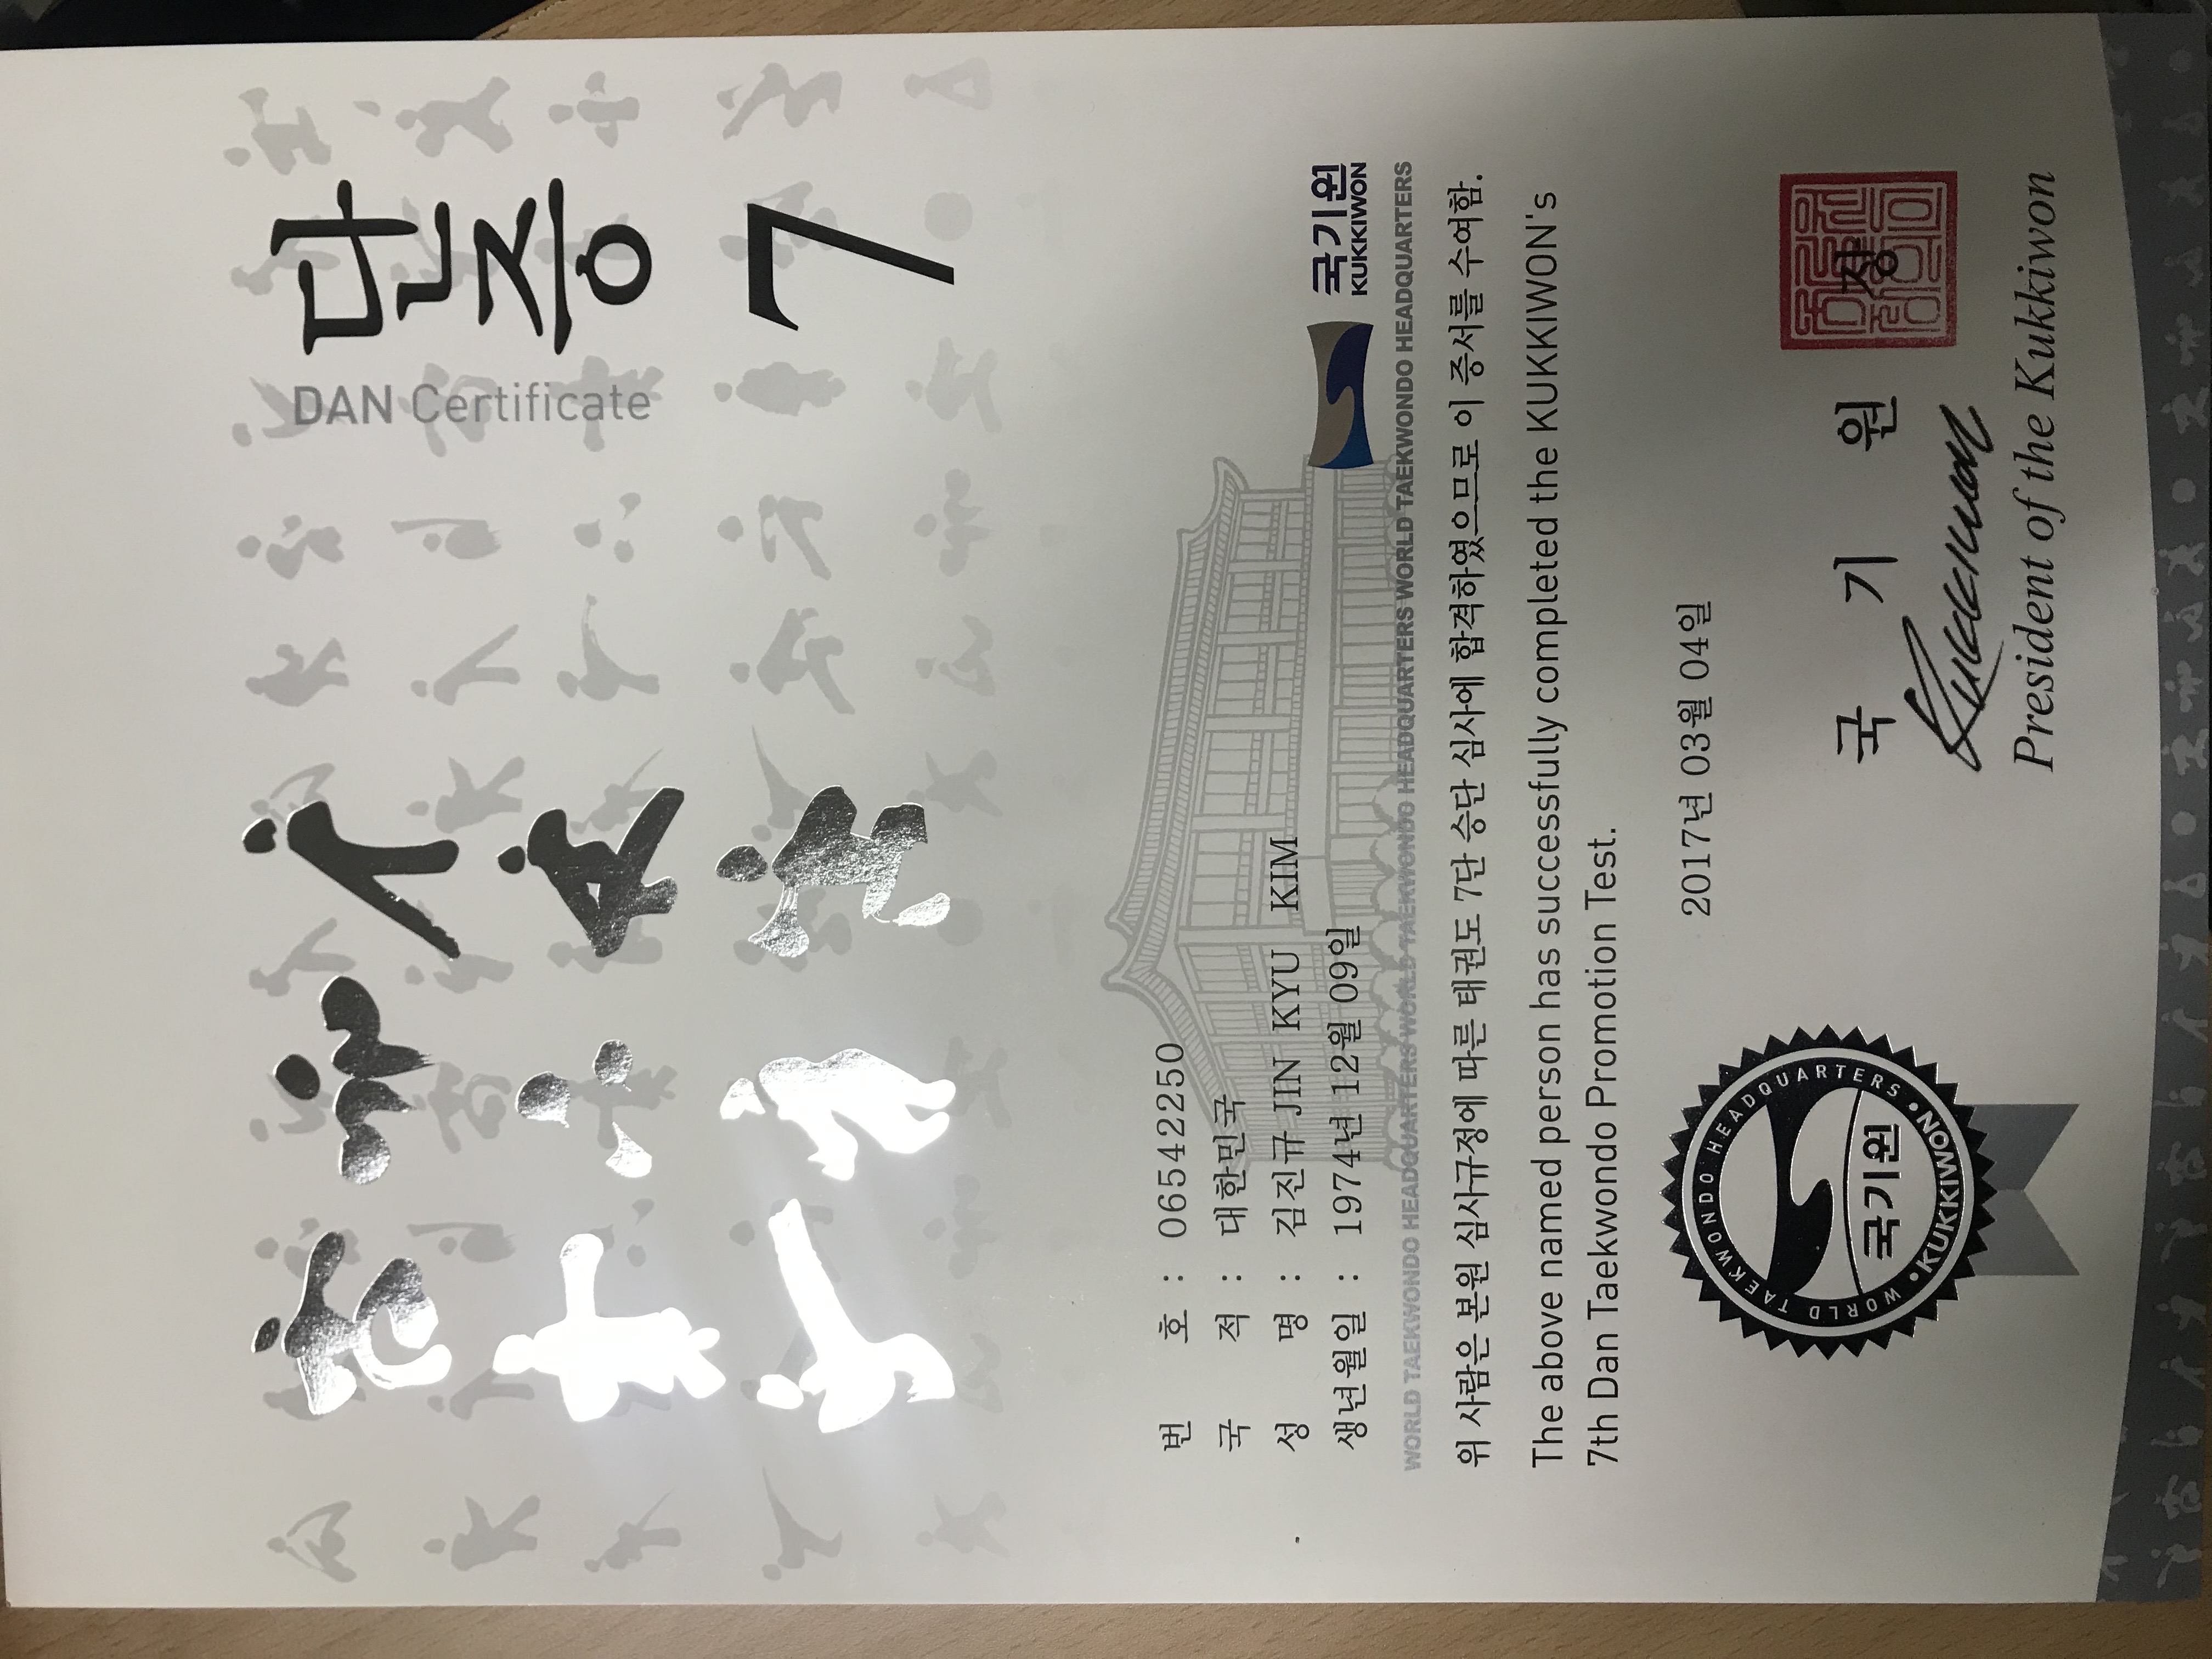 단증
DAN Certificate
7
번 호 : 06542250
국 적 : 대한민국
성 명 : 김진규 JIN KYU KIM
생년월일 : 1974년 12월 09일
국기원
KUKKIWON
WORLD TAEKWONDO HEADQUARTERS WORLD TAEKWONDO HEADQUARTERS WORLD TAEKWONDO HEADQUARTERS WORLD TAEKWONDO HEADQUARTERS
위 사람은 본원 심사규정에 따른 태권도 7단 승단 심사에 합격하였으므로 이 증서를 수여함.
The above named person has successfully completed the KUKKIWON's
7th Dan Taekwondo Promotion Test.
2017년 03월 04일
WORLD TAEKWONDO HEADQUARTERS
국기원
KUKKIWON
국 기 원 장
President of the Kukkiwon